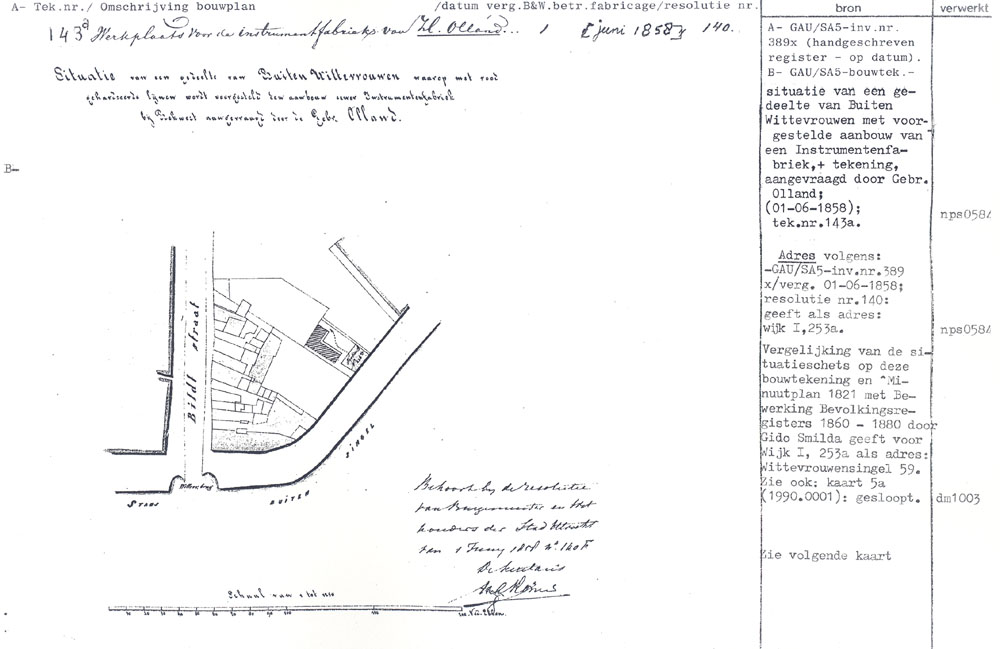 A- Tek.nr./ Omschrijving bouwplan /datum verg.B&W.betr.fabricage/resolutie nr.
bron
verwerkt
143a Werkplaats voor de instrumentfabriek van H. Olland... 1 juni 1858 140.
Situatie van een gedeelte van Buiten Wittevrouwen waarop met rood
gehardeerde lijnen wordt voorgesteld den aanbouw eener Instrumentenfabriek
aangevraagd door de Gebr. Olland.
B-
Bildt straat
STADS BUITEN SINGEL
Behoort bij de resolutie
van Burgemeester en Wet
houders der Stad Utrecht
van 1 Juny 1858 No. 140
De Secretaris
Schaal van 1 tot
A- GAU/SA5-inv.nr.
389x (handgeschreven
register - op datum).
B- GAU/SA5-bouwtek.-
situatie van een ge-
deelte van Buiten
Wittevrouwen met voor-
gestelde aanbouw van
een Instrumentenfa-
briek,+ tekening,
aangevraagd door Gebr.
Olland;
(01-06-1858);
tek.nr.143a.
nps0584
Adres volgens:
-GAU/SA5-inv.nr.389
x/verg. 01-06-1858;
resolutie nr.140:
geeft als adres:
wijk I,253a.
nps0584
Vergelijking van de si-
tuatieschets op deze
bouwtekening en "Mi-
nuutplan 1821 met Be-
werking Bevolkingsre-
gisters 1860 - 1880 door
Gido Smilda geeft voor
Wijk I, 253a als adres:
Wittevrouwensingel 59.
Zie ook: kaart 5a
(1990.0001): gesloopt.
dm1003
Zie volgende kaart